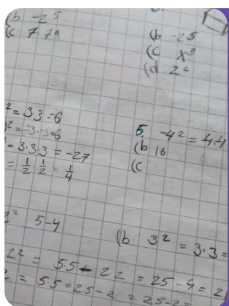 (b -25
(c 7,78
(b -25
(c x³
(d 2⁶
² = 33 = 6
² = -3·3=6
- 3·3·3 = -27
= ½ ½ = ¼
5. -4² = 4·4
(b 16
(c
2² 5-4
(b 3² = 3·3 =
22² = 55 - 22 = 25 - 4 = 2
² = 5·5 = 25 - 2 = 25-2 =